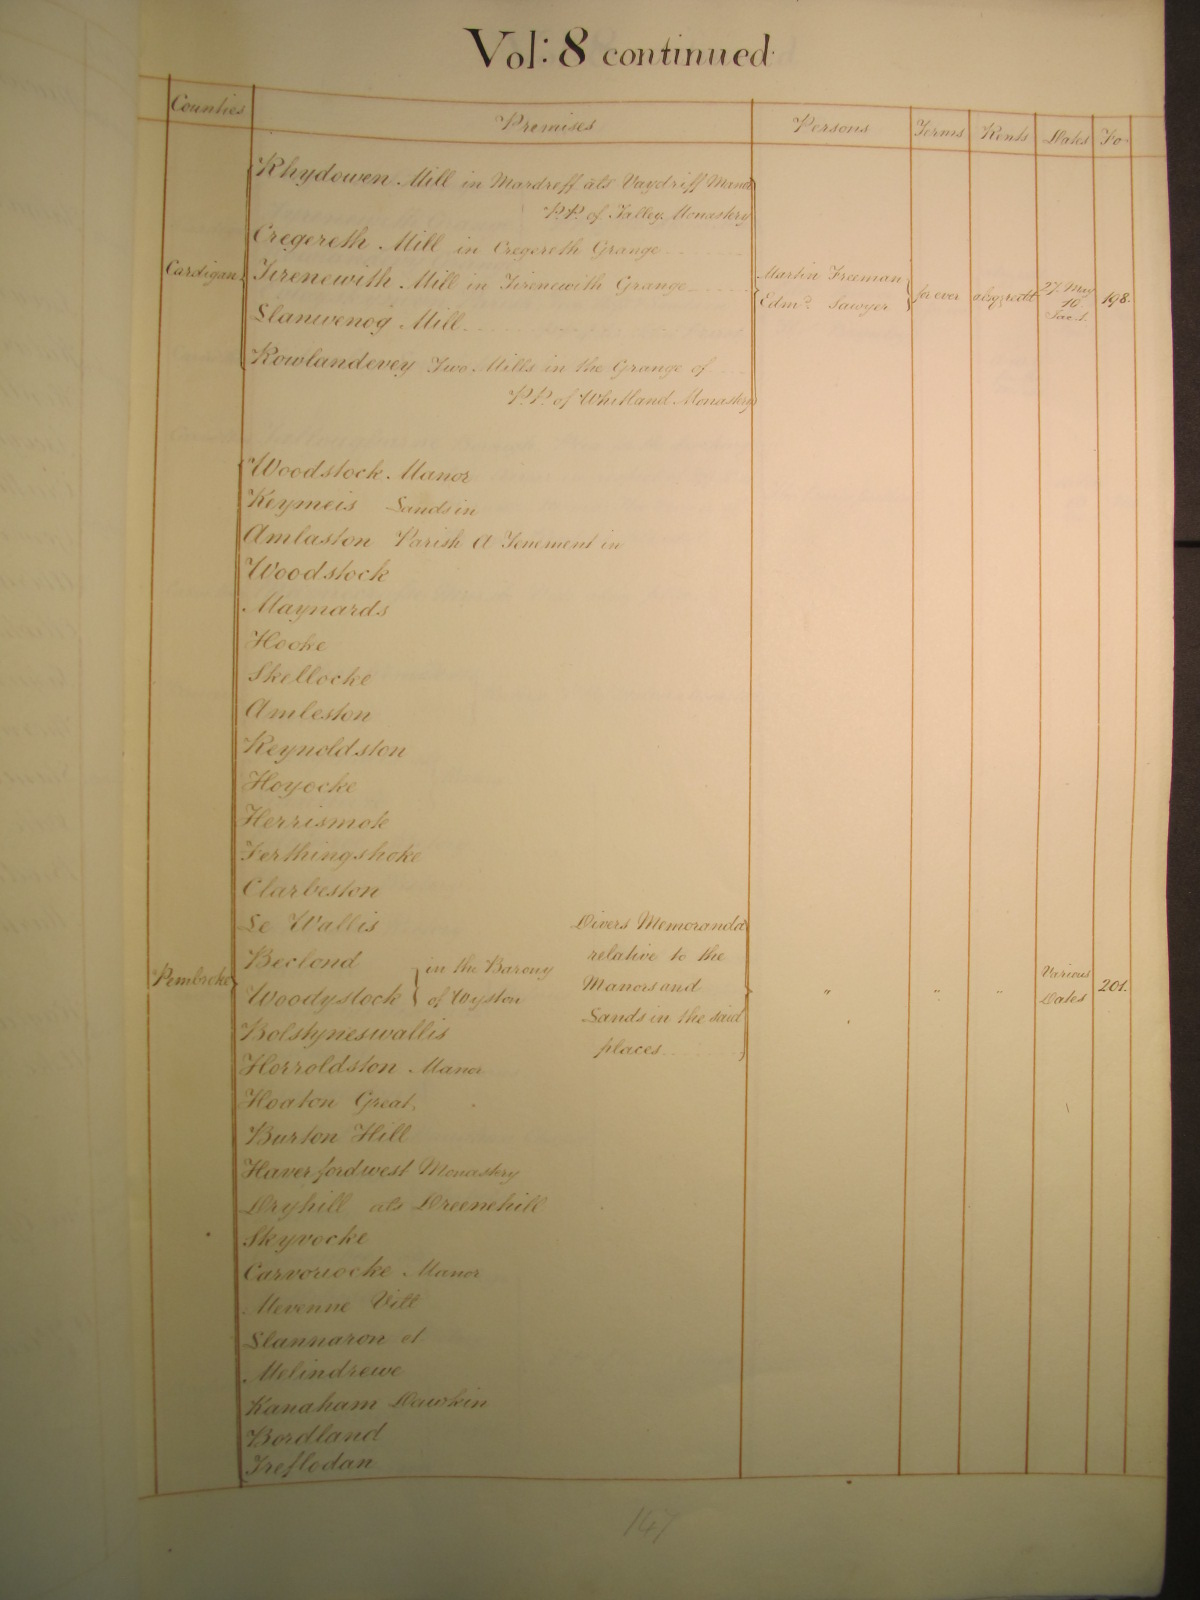 Vol: 8 continued
Counties Premises Persons Terms Rents Dates Fo.
Rhydowen Mill in Mardreff als Vaydriff Manor
P.P. of Talley Monastery
Cregereth Mill in Cregereth Grange
Cardigan Tirenewith Mill in Tirenewith Grange
Martin Freeman
Edmd. Sawyer
for ever
27 May
10
Jac. 1.
198.
Llanwenog Mill
Rowlandevey Two Mills in the Grange of
P.P. of Whitland Monastery
Woodstock Manor
Keymeis Lands in
Amlaston Parish A Tenement in
Woodstock
Maynards
Hooke
Skellocke
Amleston
Reynoldston
Hoyocke
Herrismok
Ferthingshoke
Clarbeston
Le Wallis
Beclond
Woodystock
in the Barony
of Wyston
Bolshyneswallis
Divers Memoranda
relative to the
Manors and
Lands in the said
places
Pembroke
" " "
Various
Dates
201.
Horroldston Manor
Hoaton Great
Burton Hill
Haverfordwest Monastery
Dryhill als Dreenehill
Skyvocke
Carvoriocke Manor
Mevenne Vill
Llannaron et
Melindrewe
Kanaham Dawkin
Bordland
Treflodan
147